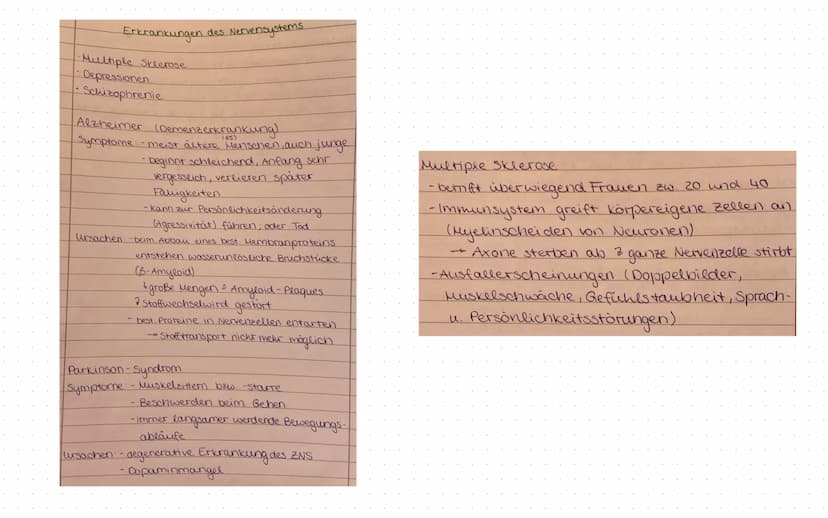 Erkrankungen des Nervensystems
· Multiple Sklerose
· Depressionen
· Schizophrenie
Alzheimer (Demenzerkrankung)
Symptome - meist ältere (65) Menschen, auch junge
- beginnt schleichend, Anfang sehr
vergesslich, verlieren später
Fähigkeiten
- kann zur Persönlichkeitsänderung
(Agressivität) führen, oder Tod
Ursachen - beim Abbau eines best. Membranproteins
entstehen wasserunlösliche Bruchstücke
(β-Amyloid)
↳ große Mengen = Amyloid-Plaques
→ Stoffwechsel wird gestört
- best. Proteine in Nervenzellen entarten
→ Stofftransport nicht mehr möglich
Parkinson-Syndrom
Symptome - Muskelzittern bzw. -starre
- Beschwerden beim Gehen
- immer langsamer werdende Bewegungs-
abläufe
Ursachen - degenerative Erkrankung des ZNS
- Dopaminmangel
Multiple Sklerose
- betrifft überwiegend Frauen zw. 20 und 40
- Immunsystem greift körpereigene Zellen an
(Myelinscheiden von Neuronen)
→ Axone sterben ab → ganze Nervenzelle stirbt
- Ausfallerscheinungen (Doppelbilder,
Muskelschwäche, Gefühlstaubheit, Sprach-
u. Persönlichkeitsstörungen)